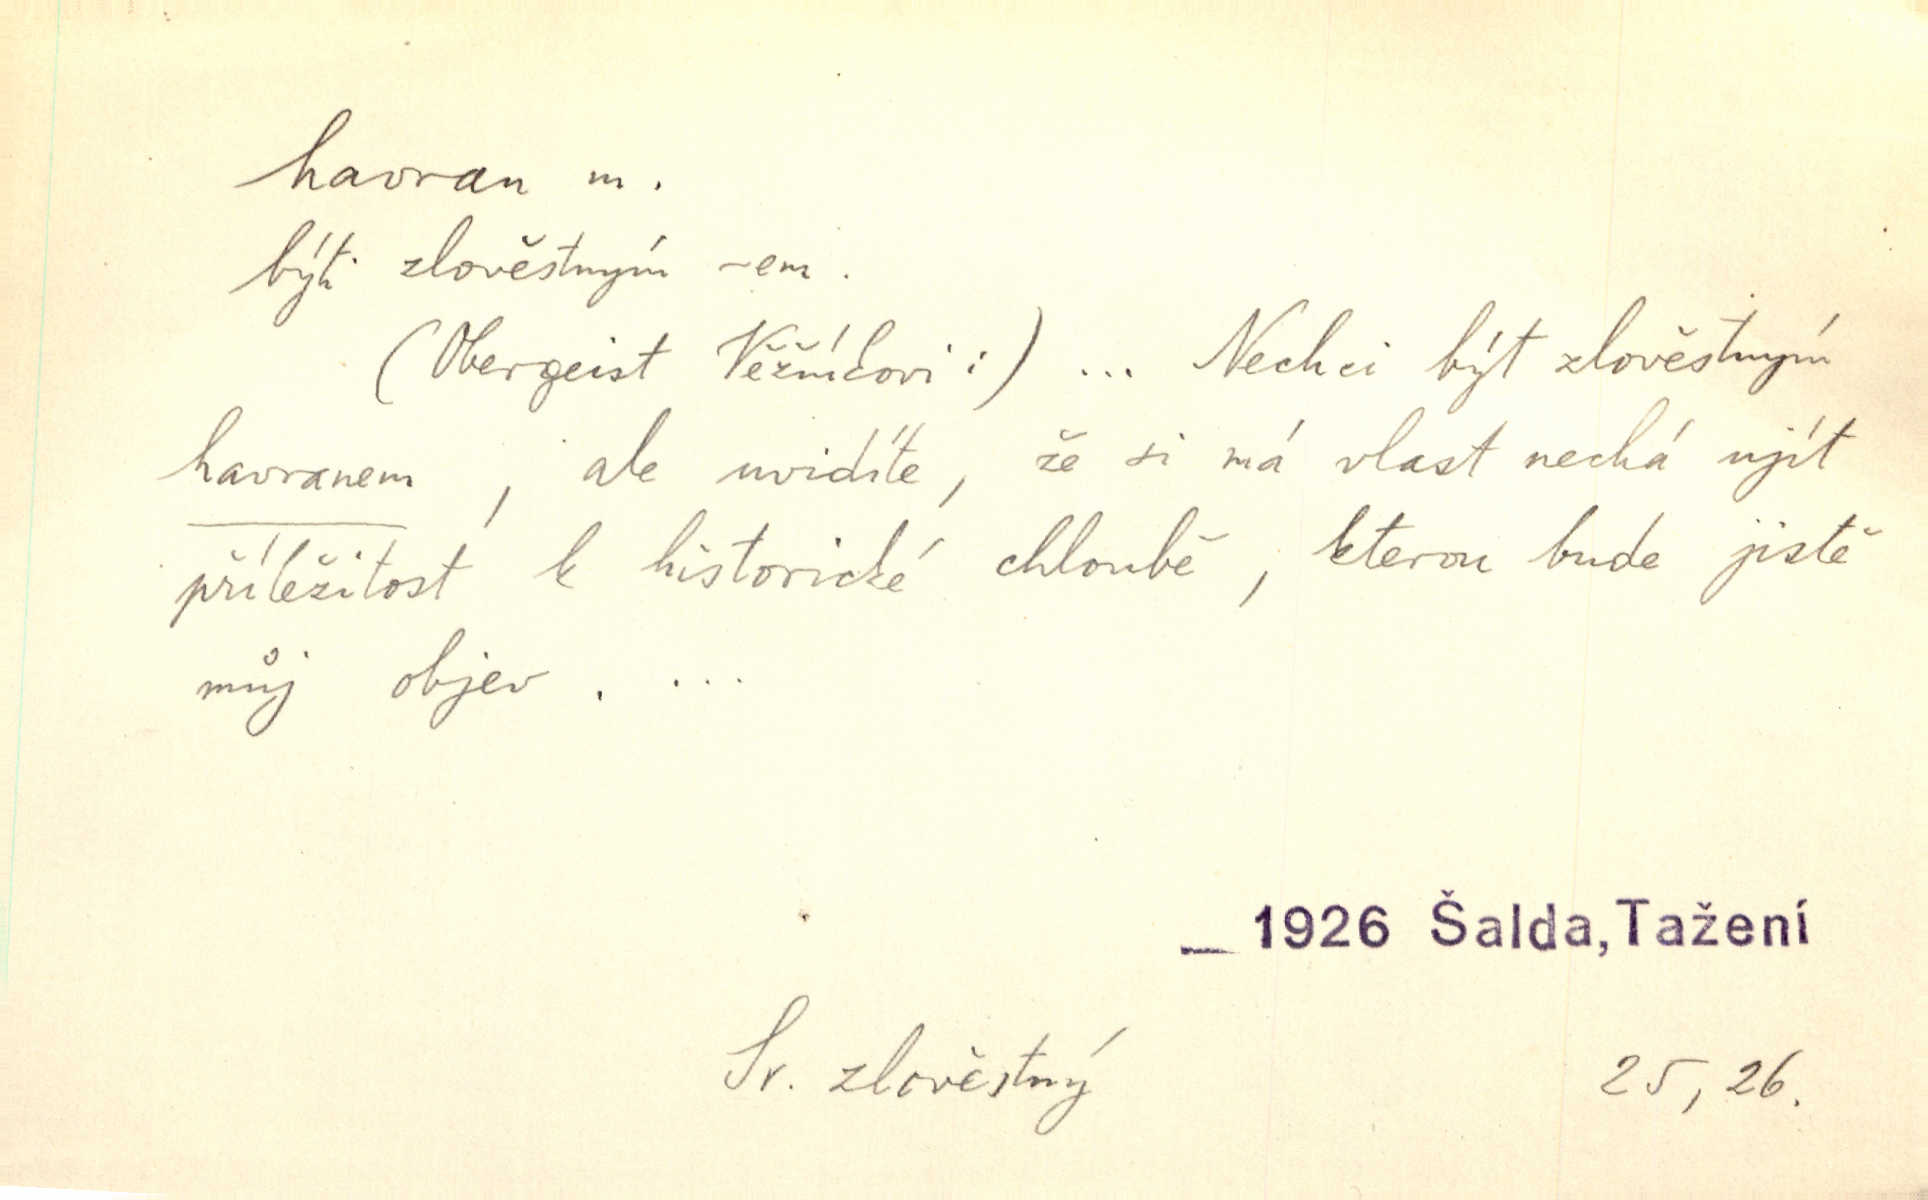 havran m.
býti zlověstným ~em.
(Obergeist Věžníčkovi:) ... Nechci být zlověstným
havranem, ale uvidíte, že si má vlast nechá ujít
příležitost k historické chloubě, kterou bude jistě
můj objev. ...
_ 1926 Šalda, Tažení
Sr. zlověstný 25, 26.